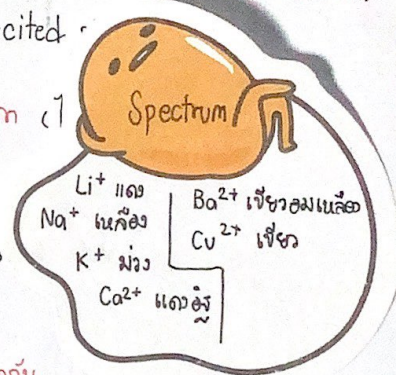 cited
Spectrum
Li⁺ แดง
Na⁺ เหลือง
K⁺ ม่วง
Ca²⁺ แดงอิฐ
Ba²⁺ เขียวอมเหลือง
Cu²⁺ เขียว